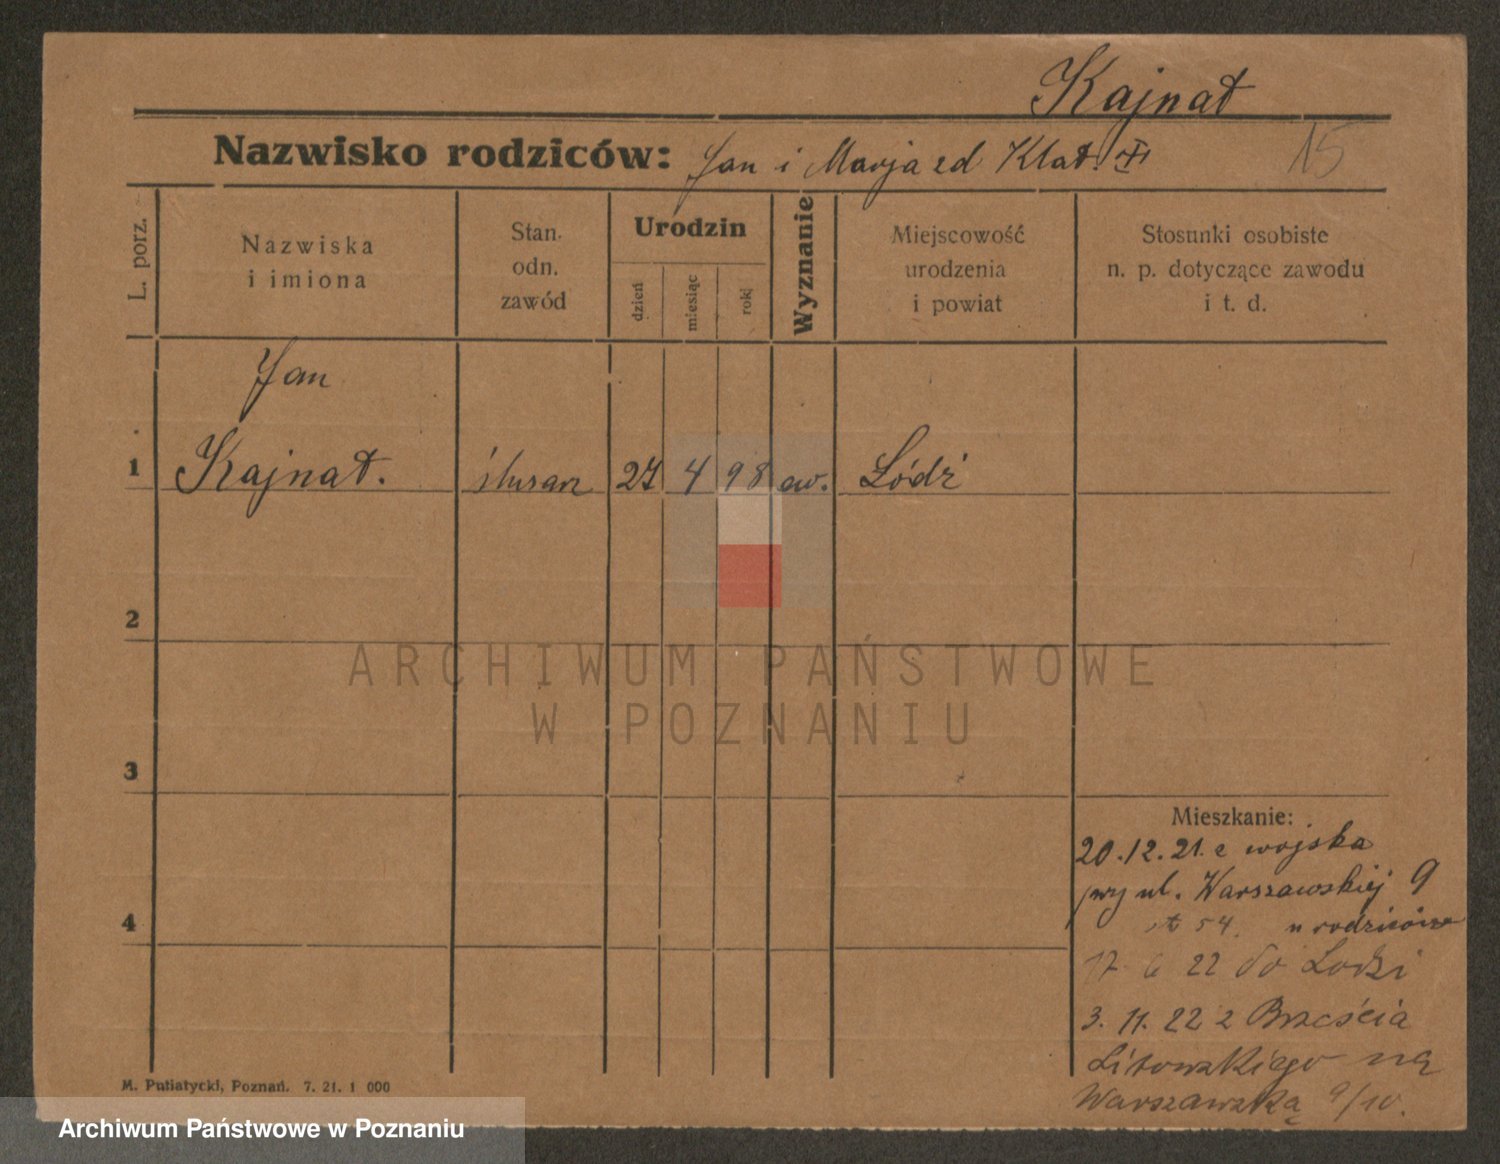 Kajnat
Nazwisko rodziców: Jan i Marja zd Klat.
15
L. porz.
Nazwiska
i imiona
Stan.
odn.
zawód
Urodzin
dzień
miesiąc
rok
Wyznanie
Miejscowość
urodzenia
i powiat
Stosunki osobiste
n. p. dotyczące zawodu
i t. d.
Jan
1 Kajnat. ślusarz 27 4 98 ew. Łódź
2
ARCHIWUM PAŃSTWOWE
W POZNANIU
3
4
Mieszkanie:
20.12.21. z wojska
przy ul. Warszawskiej 9
54. u rodziców
17 6 22 do Łodzi
3. 11. 22 z Brześcia
Litowskiego na
Warszawską 9/10.
M. Putiatycki, Poznań. 7. 21. 1 000
Archiwum Państwowe w Poznaniu